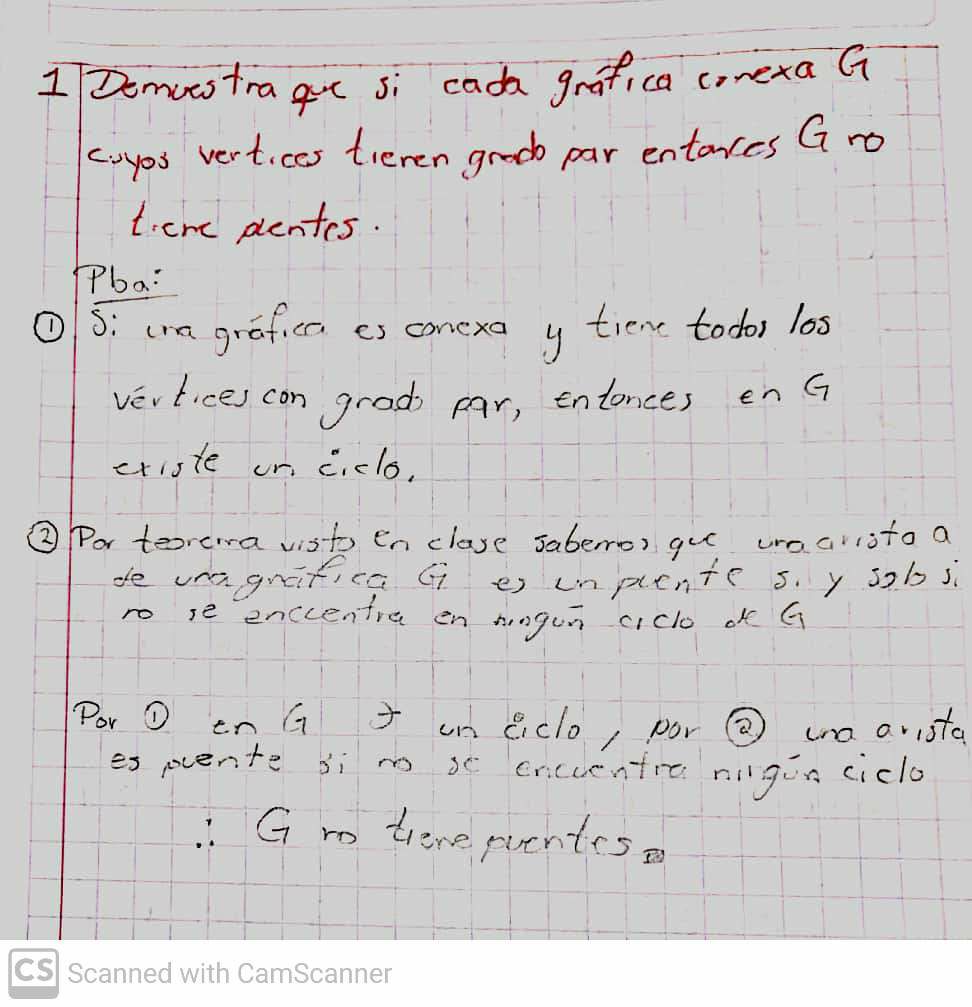 1 Demuestra que si cada gráfica conexa G
cuyos vertices tienen grado par entonces G no
tiene puentes.
Pba:
① Si una gráfica es conexa y tiene todos los
vértices con grado par, entonces en G
existe un ciclo.
② Por teorema visto en clase sabemos que una arista a
de una gráfica G es un puente si y solo si
no se encuentra en ningún ciclo de G
Por ① en G ∃ un ciclo, por ② una arista
es puente si no se encuentra ningún ciclo
∴ G no tiene puentes
CS Scanned with CamScanner